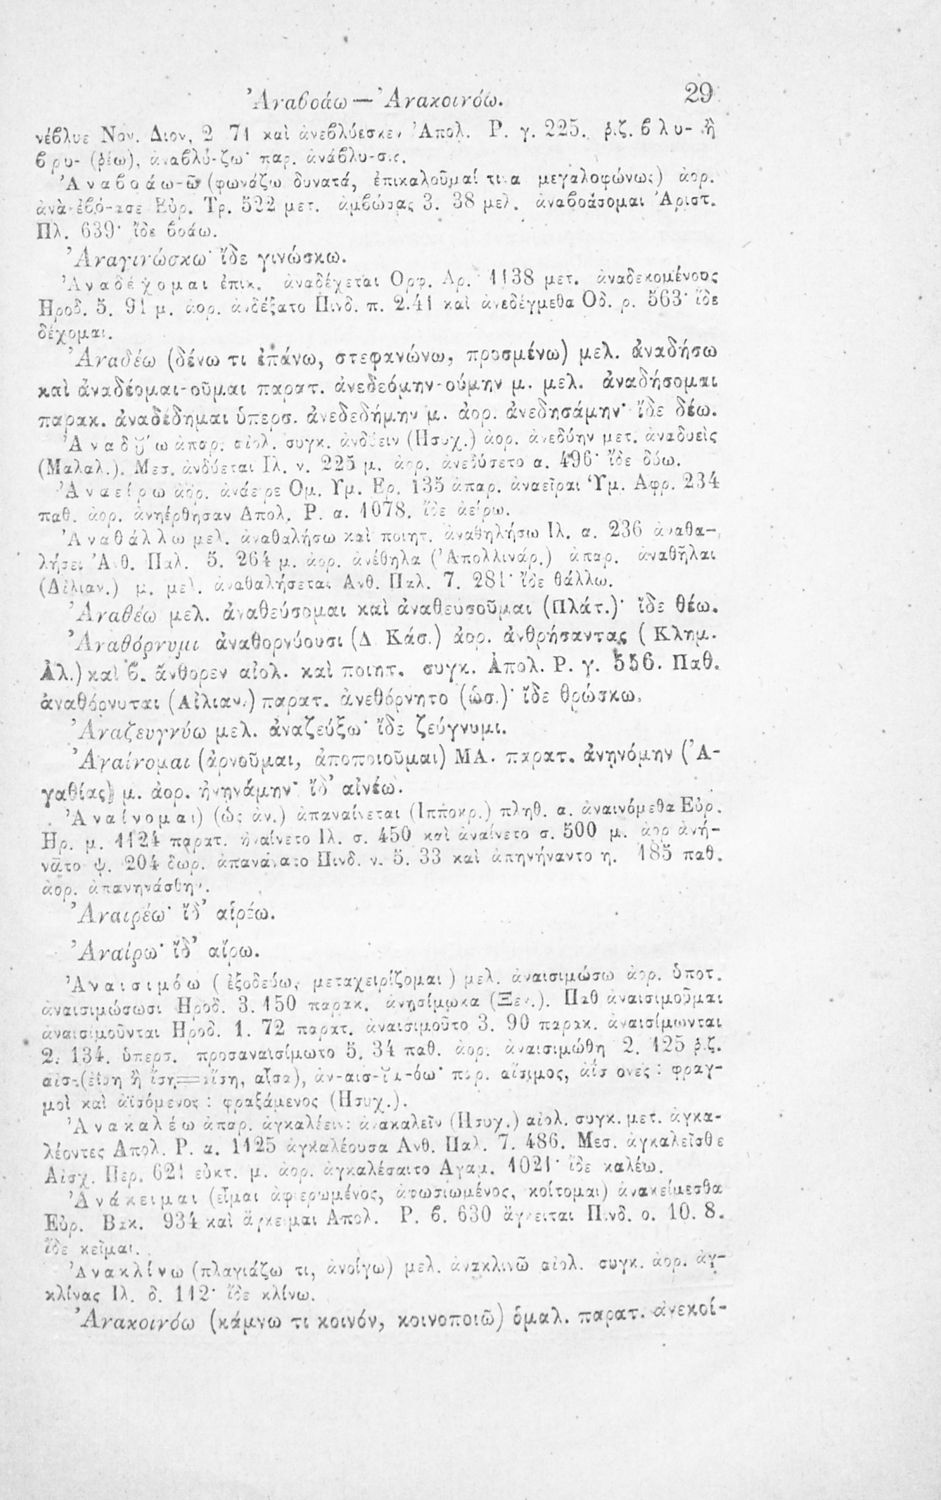 Ἀναβοάω — Ἀνακοινόω. 29
νέβλυε Νόν. Διον, 2 71 καὶ ἀνεβλύεσκεν Ἀπολ. Ρ. γ. 225. ῥ.ζ. βλυ- ἢ
βρυ- (ῥέω), ἀναβλύ-ζω· παρ. ἀνάβλυ-σις.
Ἀναβοάω-ῶ (φωνάζω δυνατά, ἐπικαλοῦμαί τινα μεγαλοφώνως) ἀορ.
Εὐρ. Τρ. 522 μετ. ἀμβώσας 3. 38 μελ. ἀναβοάσομαι Ἀριστ.
Πλ. 639· ἴδε βοάω.
Ἀναγινώσκω· ἴδε γινώσκω.
Ἀναδέχομαι ἐπικ. ἀναδέχεται Ορφ. Αρ. 1138 μετ. ἀναδεκομένους
Ηροδ. 5. 91 μ. ἀορ. ἀνδέξατο Πινδ. π. 2.41 καὶ ἀνεδέγμεθα Οδ. ρ. 563· ἴδε
δέχομαι.
Ἀναδέω (δένω τι ἐπάνω, στεφανώνω, προσμένω) μελ. ἀναδήσω
καὶ ἀναδέομαι-οῦμαι παρατ. ἀνεδεόμην-ούμην μ. μελ. ἀναδήσομαι
παρακ. ἀναδέδημαι ὑπερσ. ἀνεδεδήμην μ. ἀορ. ἀνεδησάμην· ἴδε δέω.
Ἀναδύω ἀπαρ. αἰολ. συγκ. ἀνδύειν (Ησυχ.) ἀορ. ἀνεδύην μετ. ἀναδυεὶς
(Μαλαλ.). Μεσ. ἀνδύεται Ιλ. ν. 225 μ. ἀορ. ἀνεδύσετο α. 496· ἴδε δύω.
Ἀναείρω ἀορ. ἀνάειρε Ομ. Υμ. Ερ. 135 ἀπαρ. ἀναεῖραι Ὑμ. Αφρ. 234
παθ. ἀορ. ἀνηέρθησαν Απολ. Ρ. α. 1078. ἴδε ἀείρω.
Ἀναθάλλω μελ. ἀναθαλήσω καὶ ποιητ. ἀναθηλήσω Ιλ. α. 236 ἀναθα-
λήσει Ἀνθ. Παλ. 5. 264 μ. ἀορ. ἀνέθηλα (Ἀπολλινάρ.) ἀπαρ. ἀναθῆλαι
(Αἰλιαν.) μ. μελ. ἀναθαλήσεται Ανθ. Παλ. 7. 281· ἴδε θάλλω.
Ἀναθέω μελ. ἀναθεύσομαι καὶ ἀναθευσοῦμαι (Πλάτ.)· ἴδε θέω.
Ἀναθόρνυμι ἀναθορνύουσι (Δ Κάσ.) ἀορ. ἀνθρήσαντας (Κλημ.
Ἀλ.) καὶ β. ἄνθορεν αἰολ. καὶ ποιητ. συγκ. Ἀπολ. Ρ. γ. 556. Παθ.
ἀναθόρνυται (Αἰλιαν.) παρατ. ἀνεθόρνητο (ὡσ.)· ἴδε θρώσκω.
Ἀναζευγνύω μελ. ἀναζεύξω· ἴδε ζεύγνυμι.
Ἀναίνομαι (ἀρνοῦμαι, ἀποποιοῦμαι) ΜΑ. παρατ. ἀνηνόμην (Ἀ-
γαθίας) μ. ἀορ. ἠνηνάμην· ἴδ' αἰνέω.
Ἀναίνομαι) (ὡς ἀν.) ἀπαναίνεται (Ιπποκρ.) πληθ. α. ἀναινόμεθα Εὐρ.
Ηρ. μ. 1124 παρατ. ἠναίνετο Ιλ. σ. 450 καὶ ἀναίνετο σ. 500 μ. ἀορ ἀνή-
νατο ψ. 204 δωρ. ἀπανάνατο Πινδ. ν. 5. 33 καὶ ἀπηνήναντο η. 185 παθ.
ἀορ. ἀπανηνάσθην.
Ἀναιρέω· ἴδ' αἱρέω.
Ἀναίρω· ἴδ' αἴρω.
Ἀναισιμόω (ἐξοδεύω, μεταχειρίζομαι) μελ. ἀναισιμώσω ἀορ. ὑποτ.
ἀναισιμώσωσι Ηροδ. 3. 150 παρακ. ἀνῃσίμωκα (Ξεν.). Παθ ἀναισιμοῦμαι
ἀναισιμοῦνται Ηροδ. 1. 72 παρατ. ἀναισιμοῦτο 3. 90 παρακ. ἀναισίμωνται
2. 134. ὑπερσ. προσαναισίμωτο 5. 34 παθ. ἀορ. ἀναισιμώθη 2. 125 ῥ.ζ.
αἶσα), παρ. αἴσιμος, : φραγ-
μοὶ καὶ ἀϊσόμενος : φραξάμενος (Ησυχ.).
Ἀνακαλέω ἀπαρ. ἀγκαλέειν: ἀνακαλεῖν (Ησυχ.) αἰολ. συγκ. μετ. ἀγκα-
λέοντες Απολ. Ρ. α. 1125 ἀγκαλέουσα Ανθ. Παλ. 7. 486. Μεσ. ἀγκαλεῖσθε
Αἰσχ. Περ. 621 εὐκτ. μ. ἀορ. ἀγκαλέσαιτο Αγαμ. 1021· ἴδε καλέω.
Ἀνάκειμαι (εἶμαι ἀφιερωμένος, ἀφωσιωμένος, κοίτομαι) ἀνακείμεσθα
Εὐρ. Βακ. 934 καὶ ἄγκειμαι Απολ. Ρ. β. 630 ἄγκειται Πινδ. ο. 10. 8.
ἴδε κεῖμαι.
Ἀνακλίνω (πλαγιάζω τι, ἀνοίγω) μελ. ἀνακλινῶ αἰολ. συγκ. ἀορ. ἀγ-
κλίνας Ιλ. δ. 112· ἴδε κλίνω.
Ἀνακοινόω (κάμνω τι κοινόν, κοινοποιῶ) ὁμαλ. παρατ. ἀνεκοί-